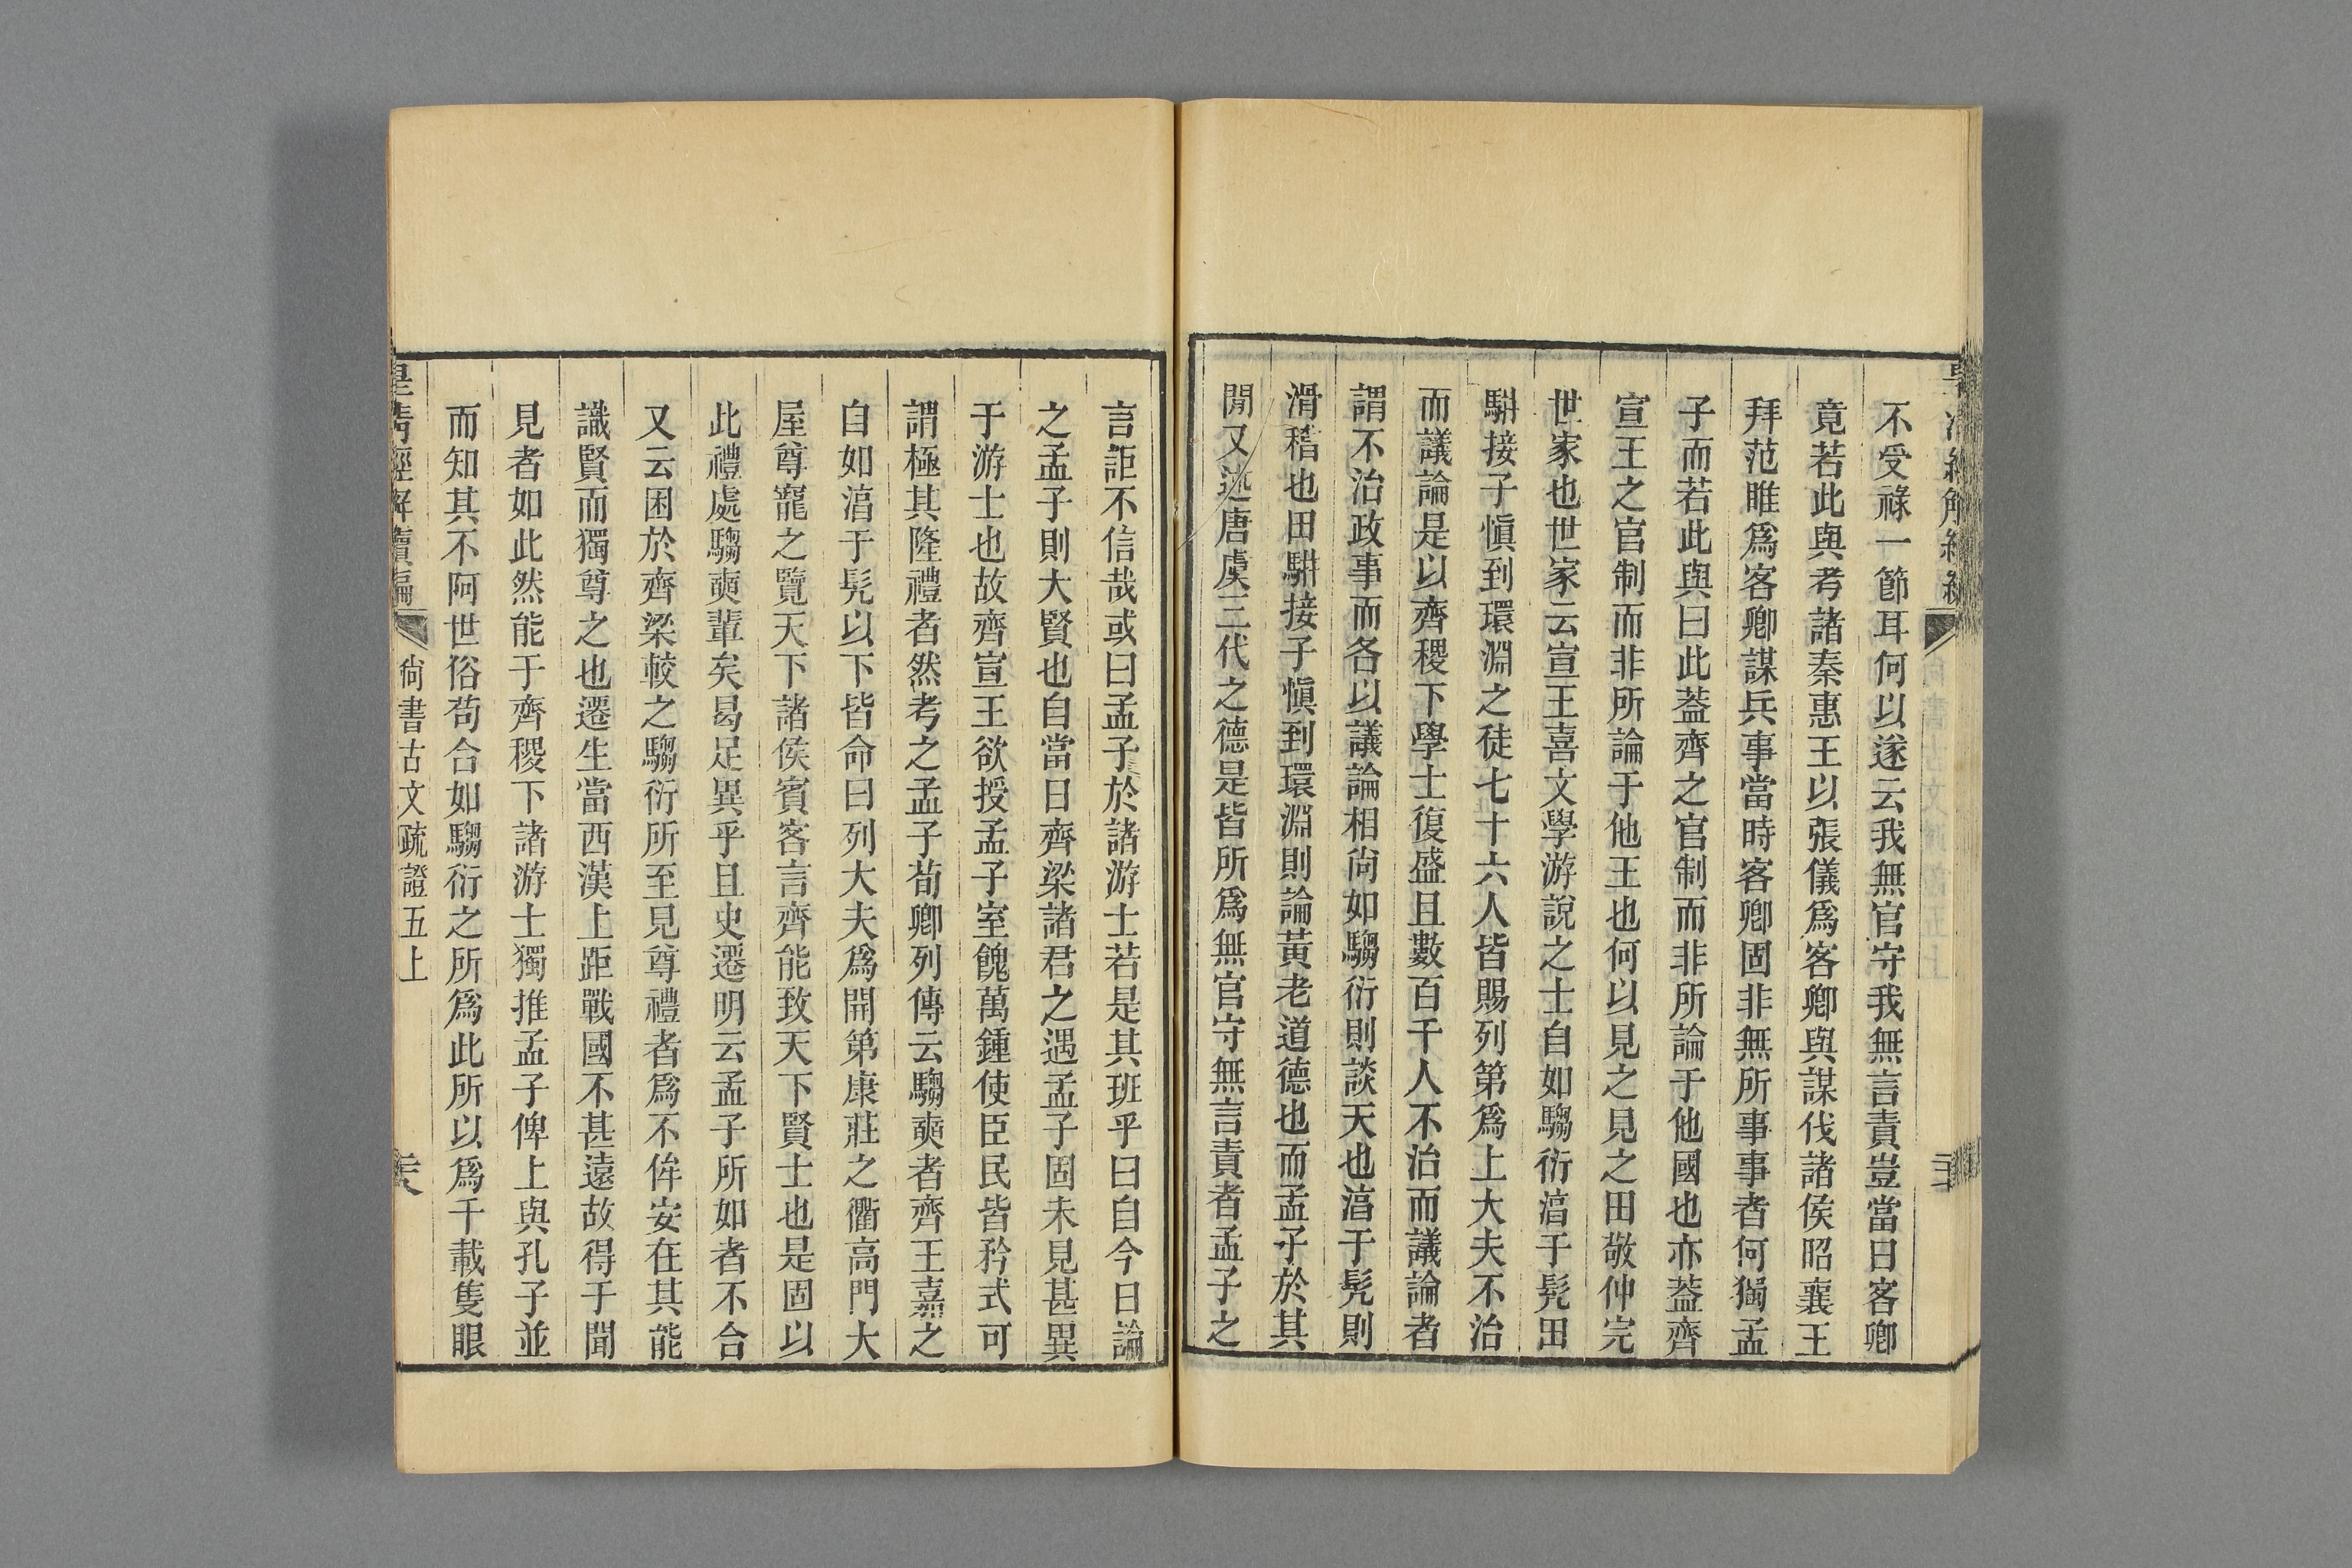 不受祿一節耳何以遂云我無官守我無言責豈當日客卿
竟若此與考諸秦惠王以張儀爲客卿與謀伐諸侯昭襄王
拜范睢爲客卿謀兵事當時客卿固非無所事事者何獨孟
子而若此與曰此葢齊之官制而非所論于他國也亦葢齊
宣王之官制而非所論于他王也何以見之見之田敬仲完
世家也世家云宣王喜文學游說之士自如騶衍湻于髡田
騈接子愼到環淵之徒七十六人皆賜列第爲上大夫不治
而議論是以齊稷下學士復盛且數百千人不治而議論者
謂不治政事而各以議論相尙如騶衍則談天也湻于髡則
滑稽也田騈接子愼到環淵則論黃老道德也而孟子於其
閒又述唐虞三代之德是皆所爲無官守無言責者孟子之
言詎不信哉或曰孟子於諸游士若是其班乎曰自今日論
之孟子則大賢也自當日齊梁諸君之遇孟子固未見甚異
于游士也故齊宣王欲授孟子室餽萬鍾使臣民皆矜式可
謂極其隆禮者然考之孟子荀卿列傳云騶奭者齊王嘉之
自如湻于髡以下皆命曰列大夫爲開第康莊之衢高門大
屋尊寵之覽天下諸侯賓客言齊能致天下賢士也是固以
此禮處騶奭輩矣曷足異乎且史遷明云孟子所如者不合
又云困於齊梁較之騶衍所至見尊禮者爲不侔安在其能
識賢而獨尊之也遷生當西漢上距戰國不甚遠故得于聞
見者如此然能于齊稷下諸游士獨推孟子俾上與孔子並
而知其不阿世俗苟合如騶衍之所爲此所以爲千載隻眼
皇清經解續編
尙書古文疏證五上